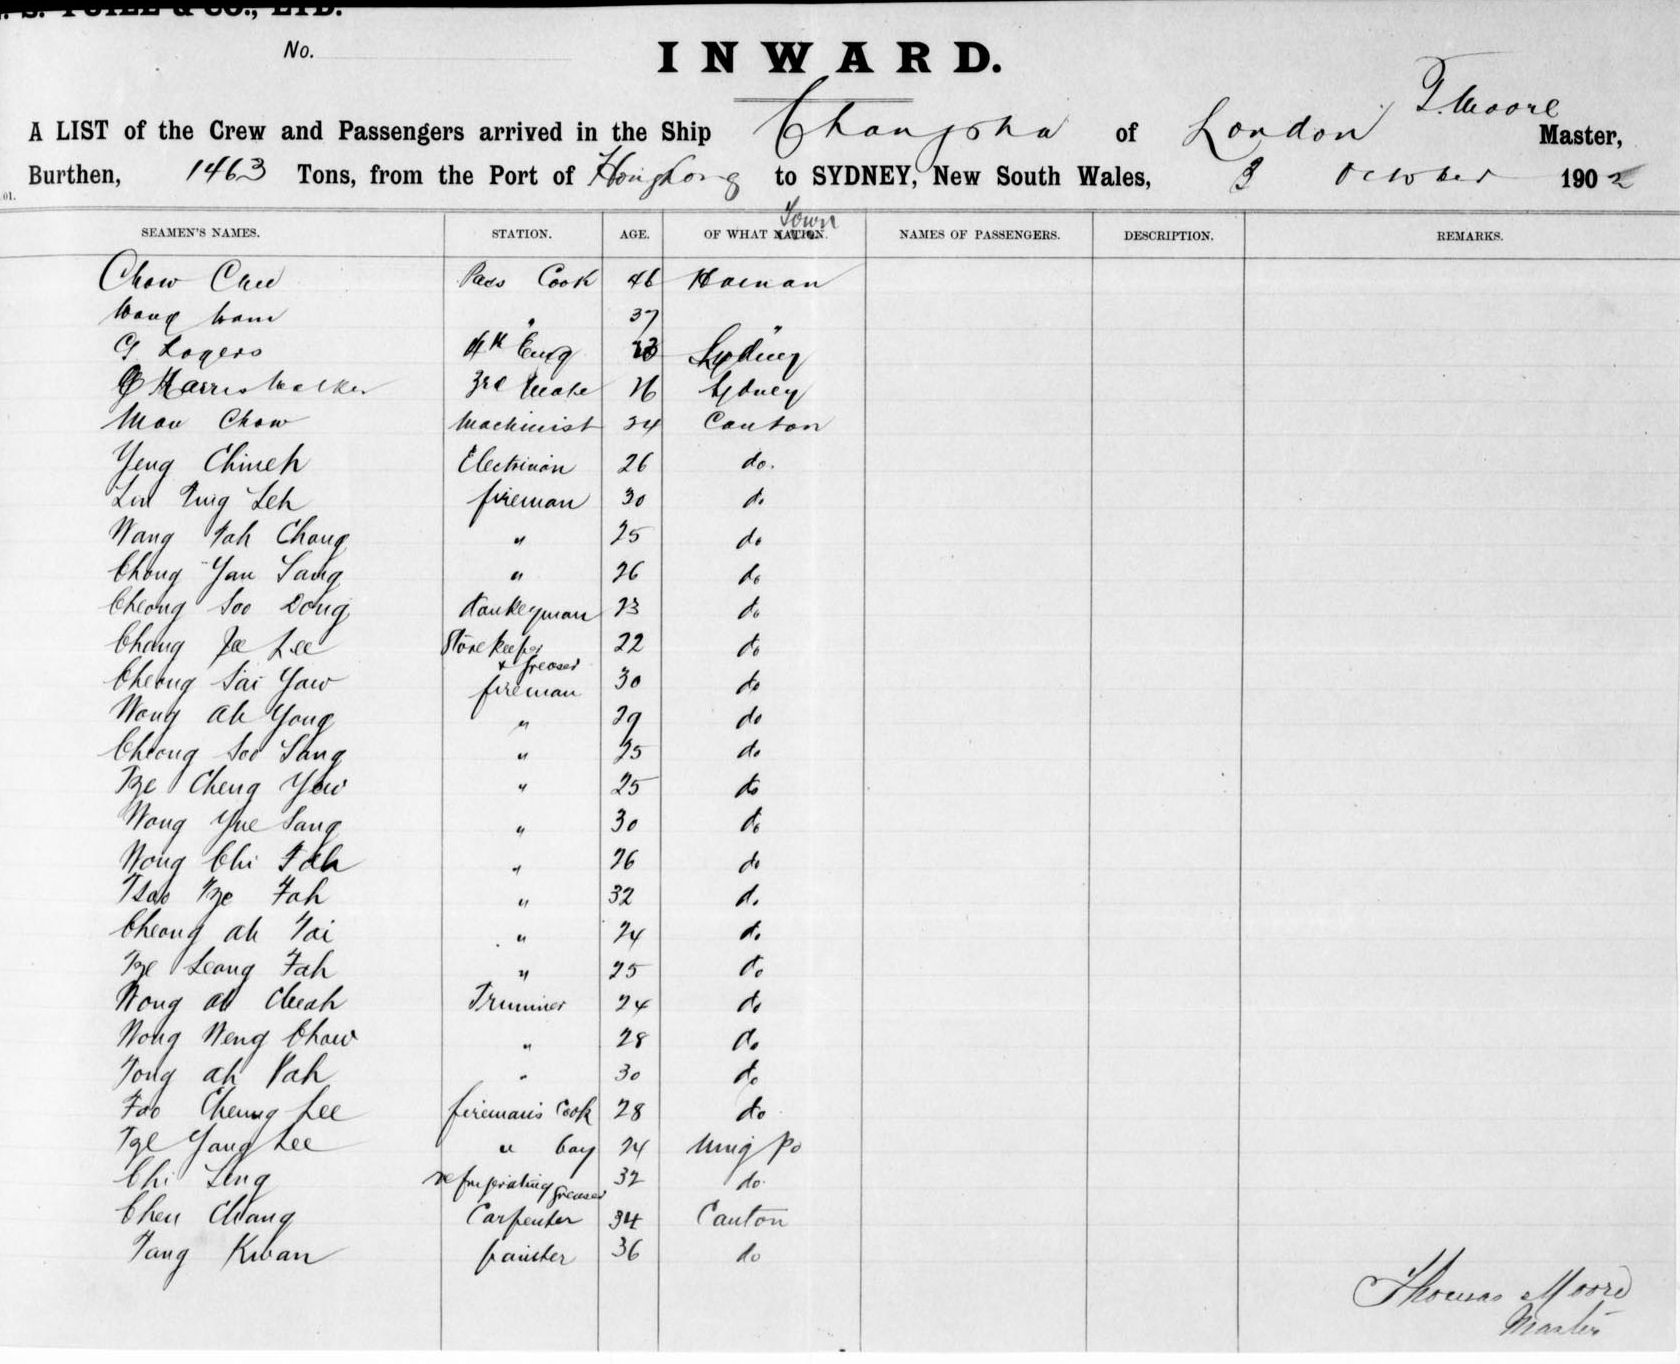 . S. YUILL & CO., LTD.
No.
INWARD.
T. Moore
A LIST of the Crew and Passengers arrived in the Ship Changsha of London Master,
Burthen, 1463 Tons, from the Port of Hongkong to SYDNEY, New South Wales, 3 October 1902
01.
Town
SEAMEN'S NAMES. STATION. AGE. OF WHAT NATION. NAMES OF PASSENGERS. DESCRIPTION. REMARKS.
Chow Chee Pass Cook 46 Hainan
Wong Wam " 37 "
G Rogers 4th Eng 23 Sydney
G Harris Walker 3rd Mate 26 Sydney
Mow Chow Machinist 24 Canton
Yeng Chineh Electrician 26 do.
Lin Ling Leh fireman 30 do
Wang Fah Chong " 25 do
Chong Yan Sang " 26 do
Cheong Soo Dong donkeyman 23 do
Chong Je Lee Storekeeper 22 do
& Greaser
Cheong Sai Yow fireman 30 do
Wong Ah Yong " 29 do
Cheong Soo Sang " 25 do
Tze Cheng Yow " 25 do
Wong Yue Sang " 30 do
Wong Chi Fah " 26 do
Tsao Tze Fah " 32 do
Cheong Ah Tai " 24 do
Tze Leong Fah " 25 do
Wong Ah Cheah Trimmer 24 do
Wong Weng Chow " 28 do
Tong Ah Pah " 30 do
Foo Cheung Lee fireman's Cook 28 do
Tze Yang Lee " boy 24 Ning Po
Chi Ling refrigerating greaser 32 do
Chen Chang Carpenter 34 Canton
Tang Kwan painter 36 do
Thomas Moore
Master